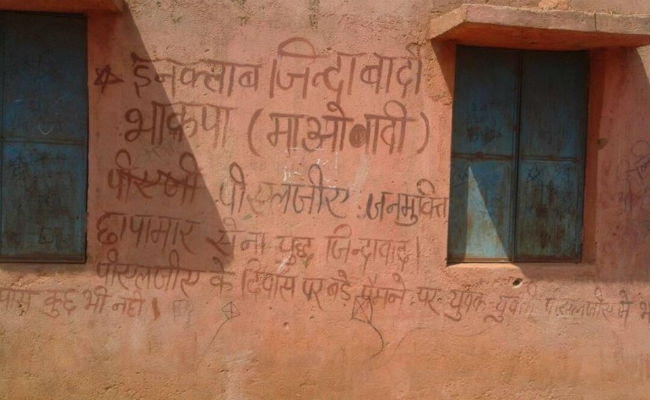 इनक्लाब जिन्दाबादी
भाकपा (माओवादी)
पीएलजी पीएलजीए जनमुक्ति
छापामार सेना युद्ध जिन्दावाद।
पीएलजीए के दिवस पर बड़े पैमाने पर युवक युवती पीएलजीए में भ
पास कुछ भी नही।